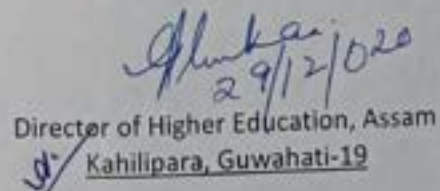 29/12/020
Director of Higher Education, Assam
Kahilipara, Guwahati-19